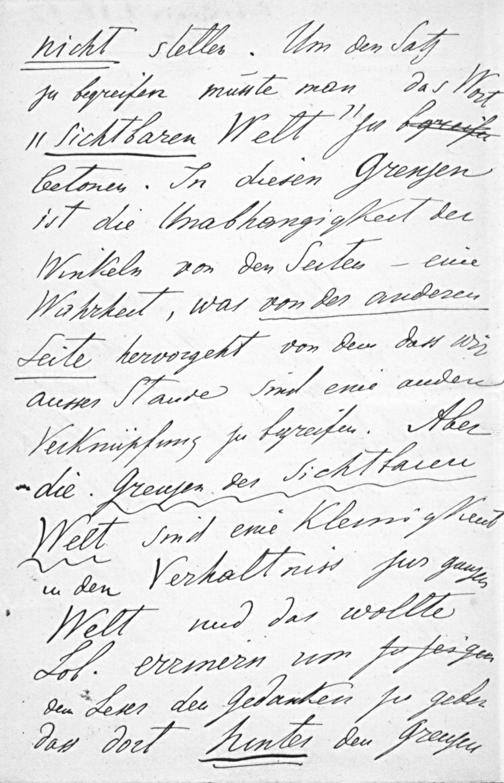 nicht stellen. Um den Satz
zu begreifen müsste man das Wort
"sichtbaren Welt" zu begreifen
betonen. In diesen Grenzen
ist die Unabhangigkeit der
Winkeln von den Seiten – eine
Wahrheit, was von der anderen
Seite hervorgeht von dem dass wir
ausser Stande sind eine andere
Verknüpfung zu begreifen. Aber
die Grenzen der sichtbaren
Welt sind eine Kleinigkeit
in den Verhaltniss zur ganzen
Welt und das wollte
Lob. errinern um zu zeigen
dem Leser den Gedanken zu geben
dass dort hinter den Grenzen